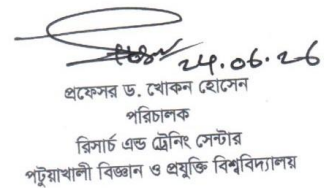 24.06.26
প্রফেসর ড. খোকন হোসেন
পরিচালক
রিসার্চ এন্ড ট্রেনিং সেন্টার
পটুয়াখালী বিজ্ঞান ও প্রযুক্তি বিশ্ববিদ্যালয়